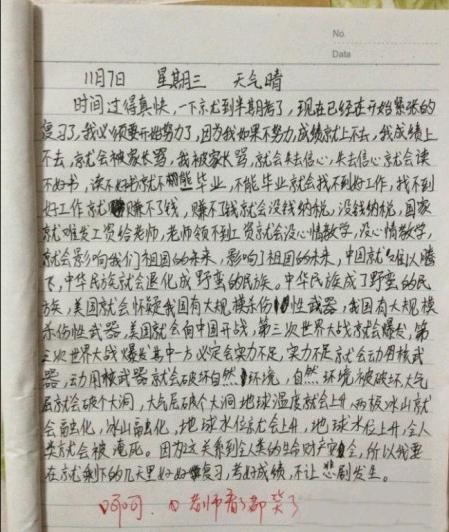 No.
Date
11月7日 星期三 天气晴
时间过得真快,一下就到半期考了,现在已经在开始紧张的
复习了,我必须要开始努力了,因为我如果不努力,成绩就上不去,我成绩上
不去,就会被家长骂,我被家长骂,就会失去信心,失去信心就会读
不好书,读不好书就不能毕业,不能毕业就会找不到好工作,找不到
好工作就赚不了钱,赚不了钱就会没钱纳税,没钱纳税,国家
就难发工资给老师,老师领不到工资就会没心情教学,没心情教学,
就会影响我们祖国的未来,影响了祖国的未来,中国就难以腾
飞,中华民族就会退化成野蛮的民族。中华民族成了野蛮的民
族,美国就会怀疑我国有大规模杀伤性武器,我国有大规模
杀伤性武器,美国就会向中国开战,第三次世界大战就会爆发,第
三次世界大战爆发其中一方必定会实力不足,实力不足就会动用核武
器,动用核武器就会破坏自然环境,自然环境被破坏,大气
层就会破个大洞,大气层破个大洞地球温度就会上升,两极冰山就
会融化,冰山融化,地球水位就会上升,地球水位上升,全人
类就会被淹死。因为这关系到全人类的生命财产安全,所以我要
在就剩下的几天里好好复习,考好成绩,不让悲剧发生。
呵呵,老师看了都笑了